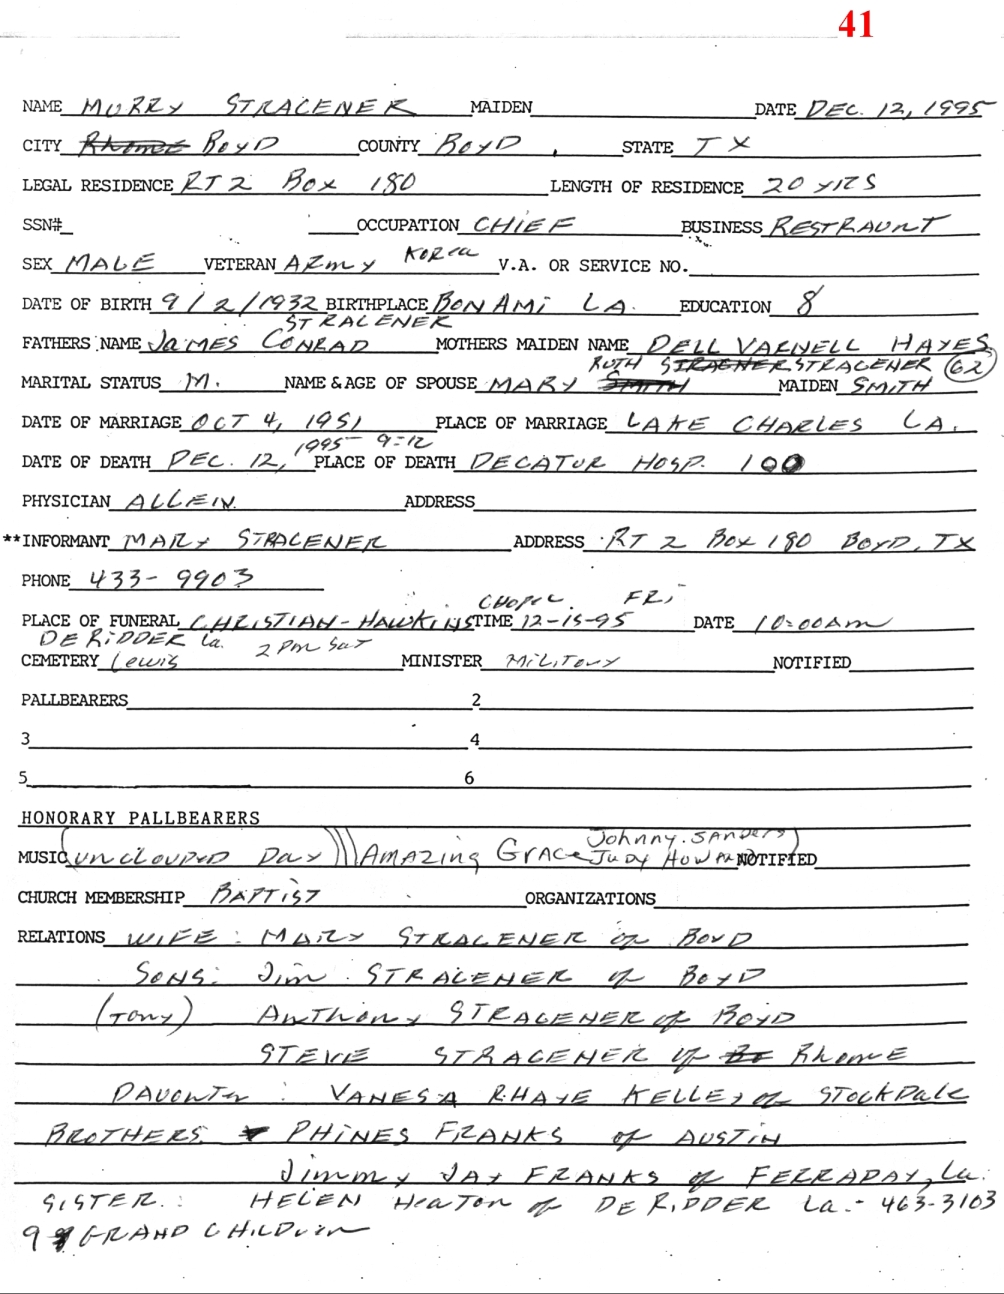 41
NAME MURRY STRACENER MAIDEN DATE DEC. 12, 1995
CITY Rhome BOYD COUNTY BOYD, STATE TX
LEGAL RESIDENCE RT 2 Box 180 LENGTH OF RESIDENCE 20 YRS
SSN# OCCUPATION CHIEF BUSINESS RESTRAUNT
SEX MALE VETERAN ARMY KOREA V.A. OR SERVICE NO.
DATE OF BIRTH 9/2/1932 BIRTHPLACE BON AMI LA. EDUCATION 8
STRACENER
FATHERS NAME JAMES CONRAD MOTHERS MAIDEN NAME DELL VARNELL HAYES
RUTH STRACNER STRACENER 62
MARITAL STATUS M. NAME & AGE OF SPOUSE MARY SMITH MAIDEN SMITH
DATE OF MARRIAGE OCT 4, 1951 PLACE OF MARRIAGE LAKE CHARLES LA.
1995 9=12
DATE OF DEATH DEC. 12, PLACE OF DEATH DECATUR HOSP. 100
PHYSICIAN ALLEIN ADDRESS
**INFORMANT MARY STRACENER ADDRESS RT 2 Box 180 BOYD, TX
PHONE 433-9903
CHAPEL FRI
PLACE OF FUNERAL CHRISTIAN-HAWKINS TIME 12-15-95 DATE 10:00 Am
DE RIDDER La. 2 Pm Sat
CEMETERY Lewis MINISTER MILITARY NOTIFIED
PALLBEARERS 2
3 4
5 6
HONORARY PALLBEARERS
Johnny SANDERS)
MUSIC (UNCLOUDED DAY) (AMAZING GRACE JUDY HOWARD NOTIFIED
CHURCH MEMBERSHIP BAPTIST ORGANIZATIONS
RELATIONS WIFE: MARY STRACENER of BOYD
SONS: Jim STRACENER of BOYD
(Tony) ANTHONY STRACENER of BOYD
STEVE STRACENER of Bo RHOME
DAUGHTER: VANESA RHAYE KELLEY of STOCKDALE
BROTHERS PHINES FRANKS of AUSTIN
Jimmy JAY FRANKS of FERRADAY, La.
SISTER: HELEN HEATON of DE RIDDER La. - 463-3103
9 GRAND CHILDREN